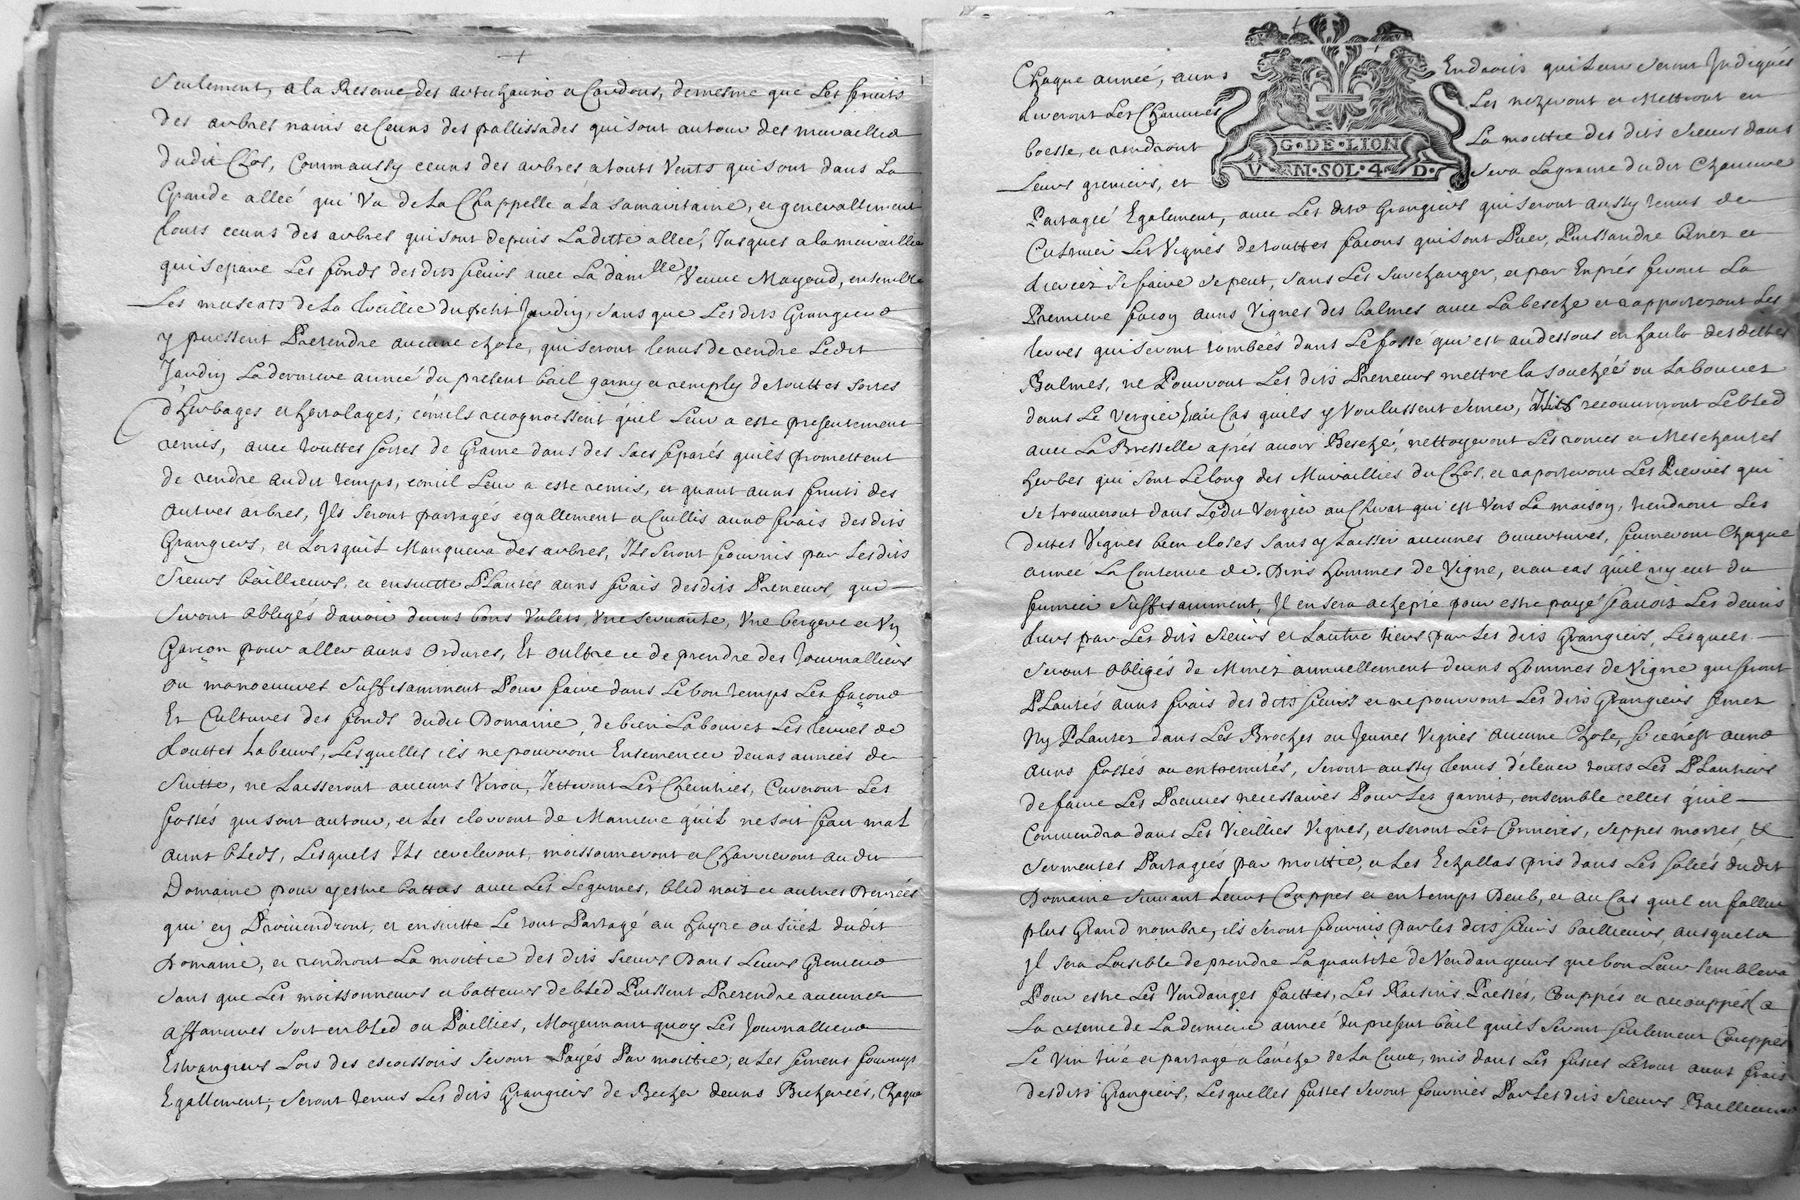 Seulement, a la Reserve des artichauno et Cardons, demesme que Les fruits
des arbres nains et Ceuns des pallissades qui sont autour des muraillies
dudit Clos, Comm aussy ceuns des arbres a touts Vents qui sont dans La
Grande alleé qui Va de La Chappelle a La Samaritaine, et generallement
touts ceuns des arbres qui sont depuis Laditte alleé, Jusques a la muraillie
qui separe Les fonds desdits sieurs avec La damlle Veuve Mayoud, ensemble
Les muscats de La treillie du petit Jardin, sans que Lesdits Grangiers
y puissent Pretendre aucune chose, qui seront tenus de rendre Ledit
Jardin La derniere anneé du present bail garny et remply de touttes sortes
d'herbages et hortolages, comils recognoissent quil Leur a esté presentement
remis, avec touttes sortes de Graine dans des sacs separés quils promettent
de rendre audit temps, comil Leur a esté remis, et quant auns fruits des
autres arbres, Ils seront partagés egallement et Cuillis auns frais desdits
Grangiers, et Lorsquil Manquera des arbres, Ils seront fournis par Lesdits
Sieurs bailleurs, et ensuitte Plantés auns frais desdits Preneurs, qui
Seront obligés d'avoir deuns bons Valets, Une servante, Une bergere et Un
Garçon pour aller auns ordures, Et oultre ce de prendre des Journalliers
ou manoeuvres Suffisamment Pour faire dans Le bon temps Les façons
Et Cultures des fonds dudit Domaine, de bien Labourer Les terres de
touttes Labeurs, Lesquelles ils ne pourront Ensemencer deuns anneés de
Suitte, ne Laisseront aucuns Virou, Jetteront Les Cheintres, Cureront Les
fossés qui sont autour, et Les clorront de Maniere quil ne soit fait mal
auns bleds, Lesquels Ils cercleront, moissonneront et Charrieront audit
Domaine pour y estre battus avec Les Legumes, bled noir et autres Denreés
qui en Proviendront, et ensuitte Le tout Partagé au hayre ou suel dudit
Domaine, et rendront La moittie des dits Sieurs Dans Leurs Greniers
Sans que Les moissonneurs et batteurs de bled Puissent Pretendre aucunes
affanures soit en bled ou Paillies, Moyennant quoy Les Journalliers
Estrangers Lors des escossons seront Payés Par moittie, et Les semens fournys
Egallement, Seront tenus Les dits Grangiers de Becher deuns Bichereés, Chaque
Chaque anneé, auns Endroits qui Leur Seront Indiqués
tireront Les Chanures Les nezeront et Mettront en
boesse, et rendront La moittie des dits Sieurs dans
Leurs greniers, et Sera La graine du dit Chanure
G·DE·LION
V N·SOL·4 D·
Partageé Egalement, avec Les dits Grangiers qui seront aussy tenus de
Cultiver Les Vignes de touttes façons qui sont Puer, Puissandre biner et
tiercer si faire se peut, sans Les Surcharger, et par Enprés feront La
Premiere façon auns Vignes des balmes avec La besche et rapporteront Les
terres qui seront tombeés dans Le fossé qui est au dessous en hault des dittes
Balmes, ne Pourront Les dits Preneurs mettre la soucheé ou Labourer
dans Le Vergier, et au Cas quils y Voulussent semer, Ils recouvriront Le bled
avec La Bresselle aprés avoir Besché, nettoyeront Les ronces et Meschantes
herbes qui sont Le long des Muraillies du Clos, et raporteront Les Pierres qui
se trouveront dans Ledit Vergier au Chirat qui est Vers La maison, tiendront Les
dittes Vignes bien closes sans y Laisser aucunes ouvertures, fumeront Chaque
anneé La Contenue de Dins hommes de Vigne, et au cas quil ny eut du
fumier Suffisamment, Il en sera achepté pour estre payé scavoir Les deuns
tiers par Les dits Sieurs et Lautre tiers par Les dits Grangiers, Lesquels
Seront obligés de Miner annuellement deuns hommes de Vigne qui seront
Plantés auns frais des dits sieurs et ne pourront Les dits Grangiers semer
Ny Planter dans Les Broches ou Jeunes Vignes aucune Chose, si ce n'est
auns fossés ou entremités, seront aussy tenus d'élever touts Les Plantiers
de faire Les Preuves necessaires Pour Les garnir, ensemble celles quil
Conviendra dans Les Vieillies Vignes, et seront Les Cornieres, seppes mortes, et
Sermentes Partageés par moittie, et Les Echallas pris dans Les saleés dudit
Domaine suivant Leurs Couppes et en temps Deub, et au Cas quil en fallut
plus Grand nombre, ils seront fournis par les dits sieurs bailleurs, ausquels
Il sera Loisible de prendre La quantité de Vendangeurs que bon Leur semblera
Pour estre Les Vendanges faittes, Les Raisins Pressés, Couppés et recouppés a
La reserve de La derniere anneé du present bail quils seront seulement Couppés
Le Vin tiré et partagé a lanche de La Cuve, mis dans Les futtes Le tout auns frais
desdits Grangiers, Lesquelles futtes seront fournies Par Les dits Sieurs Bailleurs